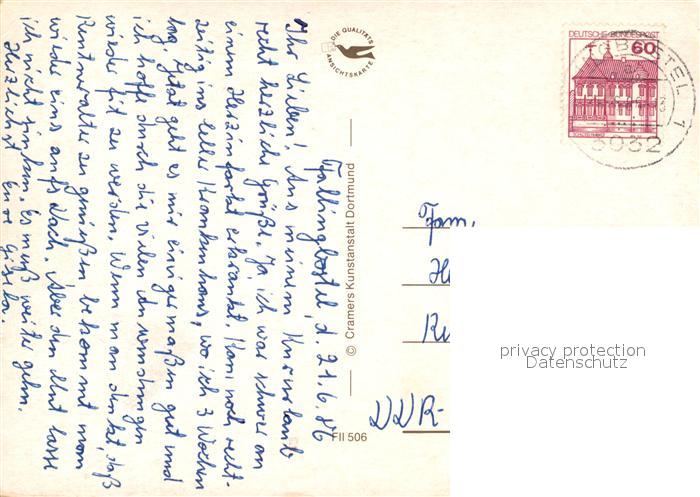 Fallingbostel, d. 21.6.86
Ihr Lieben! Aus meinem Kururlaub
recht herzliche Grüße. Ja ich war schwer an
einem Herzinfarkt erkrankt. Kam noch recht-
zeitig ins Celler Krankenhaus, wo ich 3 Wochen
lag. Jetzt geht es mir einigermaßen gut und
ich hoffe durch die vielen Anwendungen
wieder fit zu werden. Wenn man denkt, daß
Rentneralter zu genießen bekommt man
wieder eins aufs Dach. Aber den Mut lasse
ich nicht sinken, es muß weiter gehn.
Herzlichst Eure Gisela.
DIE QUALITÄTS
ANSICHTSKARTE
© Cramers Kunstanstalt Dortmund
FII 506
DEUTSCHE BUNDESPOST
60
BOSTEL 1
3032
Fam.
DDR-
privacy protection
Datenschutz